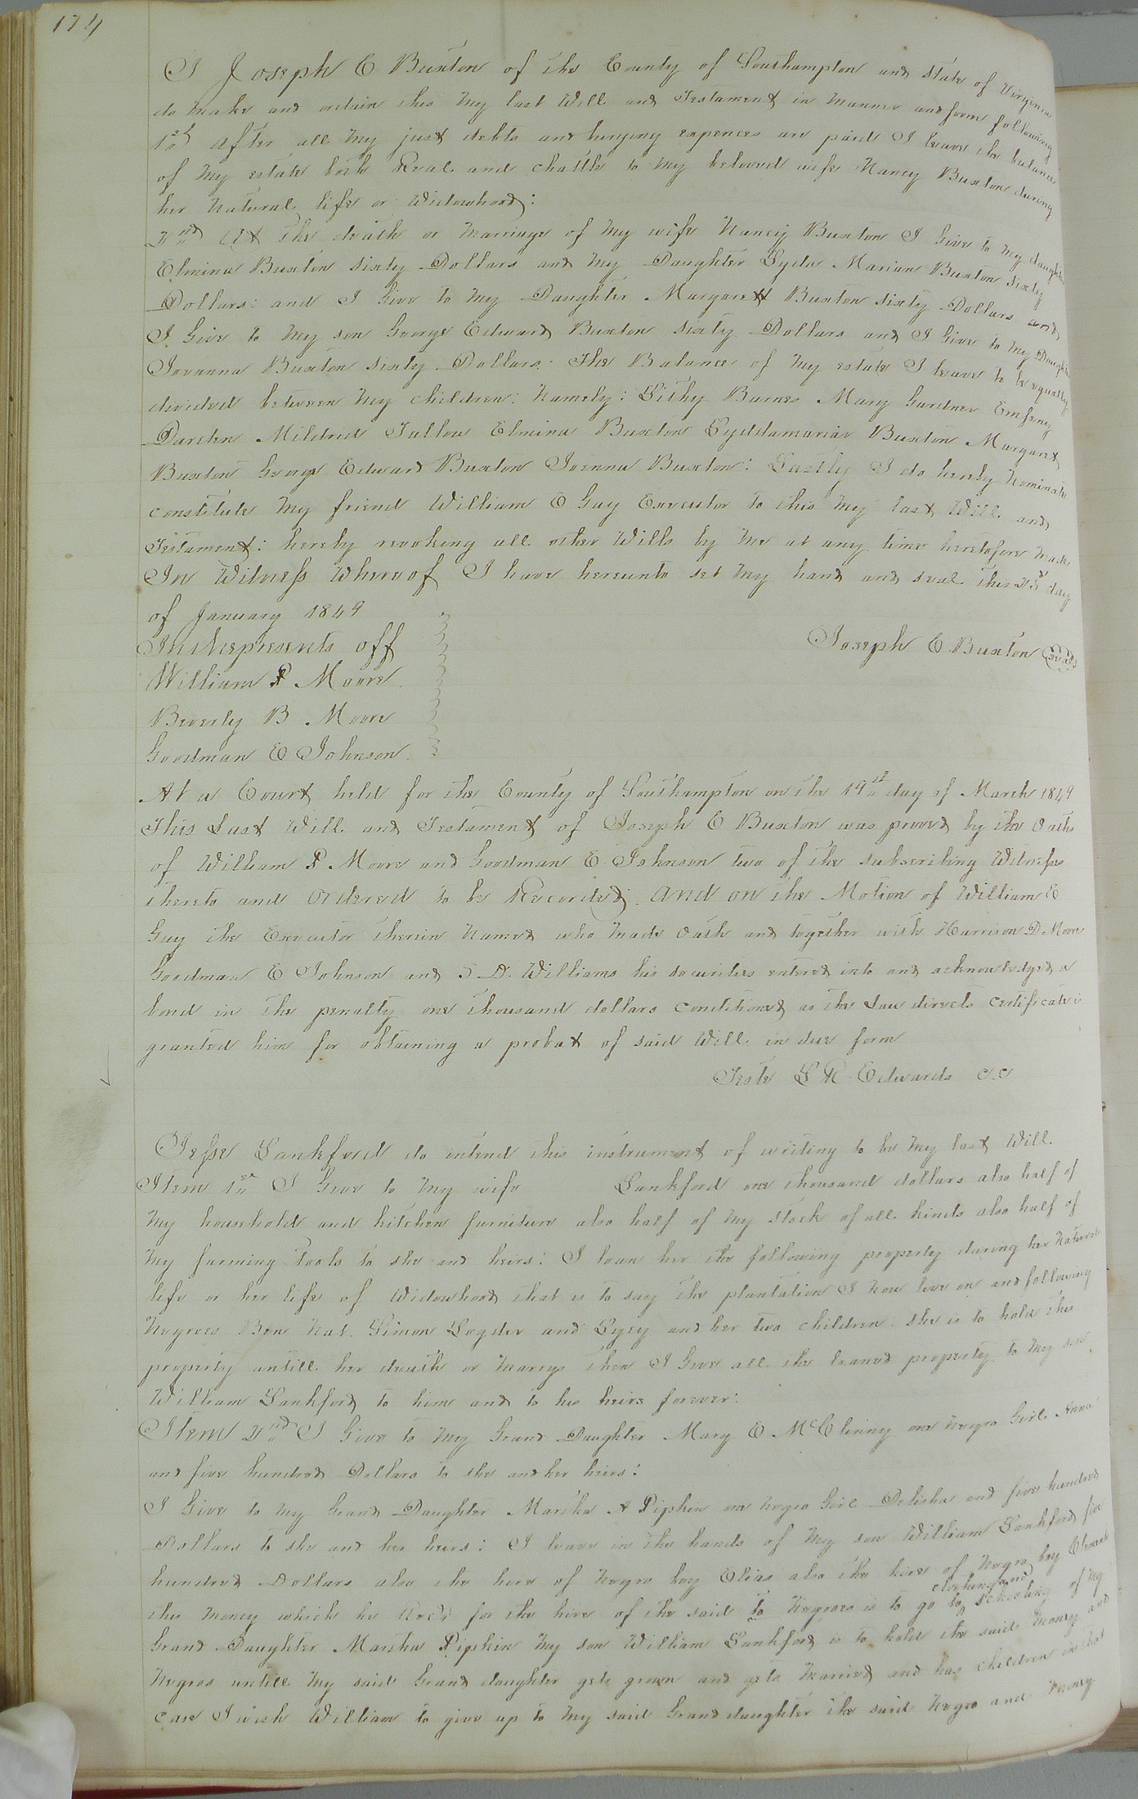 174
I Joseph E Buxton of the County of Southampton and State of Virginia
do make and ordain this my last Will and Testament in manner and form following
1st After all my just debts and burying expences are paid I leave the balance
of my estate both Real and chattle to my beloved wife Nancy Buxton during
her natural life or Widowhood:
2nd At the death or marriage of my wife Nancy Buxton I Give to my daughter
Elmina Buxton sixty Dollars and my Daughter Lydia Mariann Buxton sixty
Dollars: and I Give to my Daughter Margarett Buxton sixty Dollars and
I Give to my son George Edward Buxton sixty Dollars and I Give to my Daughter
Jovanna Buxton sixty Dollars. The Balance of my estate I leave to be equally
devided between my children: Namely: Lithy Barnes Mary Gardner
Darden Mildred Tallow Elmina Buxton Lyddamariar Buxton Margaret
Buxton George Edward Buxton Joanna Buxton: Lastly I do hereby nominate
constitute my friend William E Guy Executor to this my last Will and
Testament: hereby revoking all other Wills by me at any time heretofore made
In Witness whereof I have hereunto set my hand and seal this day
of January 1849
In the presents off
Joseph E Buxton Seal
William P Moore
Beverly B Moore
Goodman E Johnson
At a Court held for the County of Southampton on the 19th day of March 1849
This Last Will and Testament of Joseph E Buxton was proved by the Oaths
of William P Moore and Goodman E Johnson two of the subscribing Witnesses
thereto and Ordered to be Recorded. And on the Motion of William E
Guy the Executor therein named who made Oath and together with Harrison D Moore
Goodman E Johnson and J. D. Williams his securities entered into and acknowledged a
bond in the penalty one thousand dollars conditioned as the Law directs certificate is
granted him for obtaining a probat of said Will in due form
Teste L R Edwards C.C
I Jesse Lankford do intend this instrument of writing to be my last Will.
Item 1st I Give to my wife Lankford one thousand dollars also half of
my household and kitchen furniture also half of my stock of all kinds also half of
my farming tools to she and heirs: I loan her the following property during her natural
life or her life of Widowhood that is to say the plantation I now live on and following
Negroes Ben Nat. Simon Logder and Lyzy and her two children she is to hold this
property untill her death or marryg then I Give all the loaned property to my son
William Lankford to him and to his heirs forever:
Item 2nd I Give to my Grand Daughter Mary E McClenny one negro Girl Anna
and five hundred Dollars to she and her heirs:
I Give to my Grand Daughter Martha A Pipkin one negro Girl Delisha and five hundred
Dollars to she and her heirs: I leave in the hands of my son William Lankford five
hundred Dollars also the here of negro boy Elias also the hire of negro boy
this money which he for the hire of the said to Negroes is to go to clothing and schooling of my
Grand Daughter Martha Pipkin my son William Lankford is to hold the said money and
negroes untill my said Grand daughter gets grown and gets married and has children in that
case I wish William to give up to my said Grand daughter the said negro and money